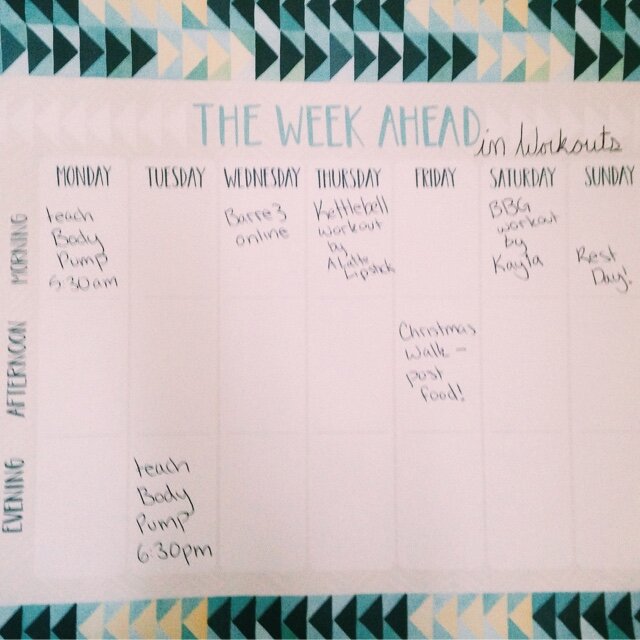 THE WEEK AHEAD in Workouts
MONDAY TUESDAY WEDNESDAY THURSDAY FRIDAY SATURDAY SUNDAY
MORNING
teach
Body
Pump
5:30am
Barre3
online
Kettlebell
workout
by
Lipstick
BBG
workout
by
Kayla
Rest
Day!
AFTERNOON
Christmas
Walk -
post
food!
EVENING
teach
Body
Pump
6:30pm